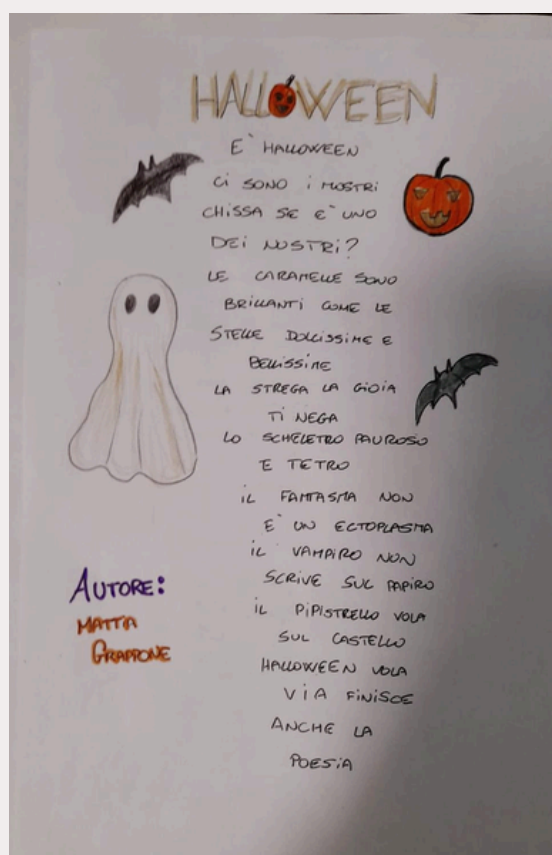 HALLOWEEN
E` HALLOWEEN
Ci SONO i MOSTRi
CHiSSA SE E` UNO
DEi NOSTRi?
LE CARAMELLE SONO
BRiLLANTi COME LE
STELLE DOLCiSSiME E
BELLiSSiME
LA STREGA LA GiOiA
Ti NEGA
LO SCHELETRO PAUROSO
E TETRO
iL FANTASMA NON
E` UN ECTOPLASMA
iL VAMPiRO NON
SCRiVE SUL PAPiRO
iL PiPiSTRELLO VOLA
SUL CASTELLO
HALLOWEEN VOLA
ViA FiNiSCE
ANCHE LA
POESiA
AUTORE:
MATTIA
GRAPPONE